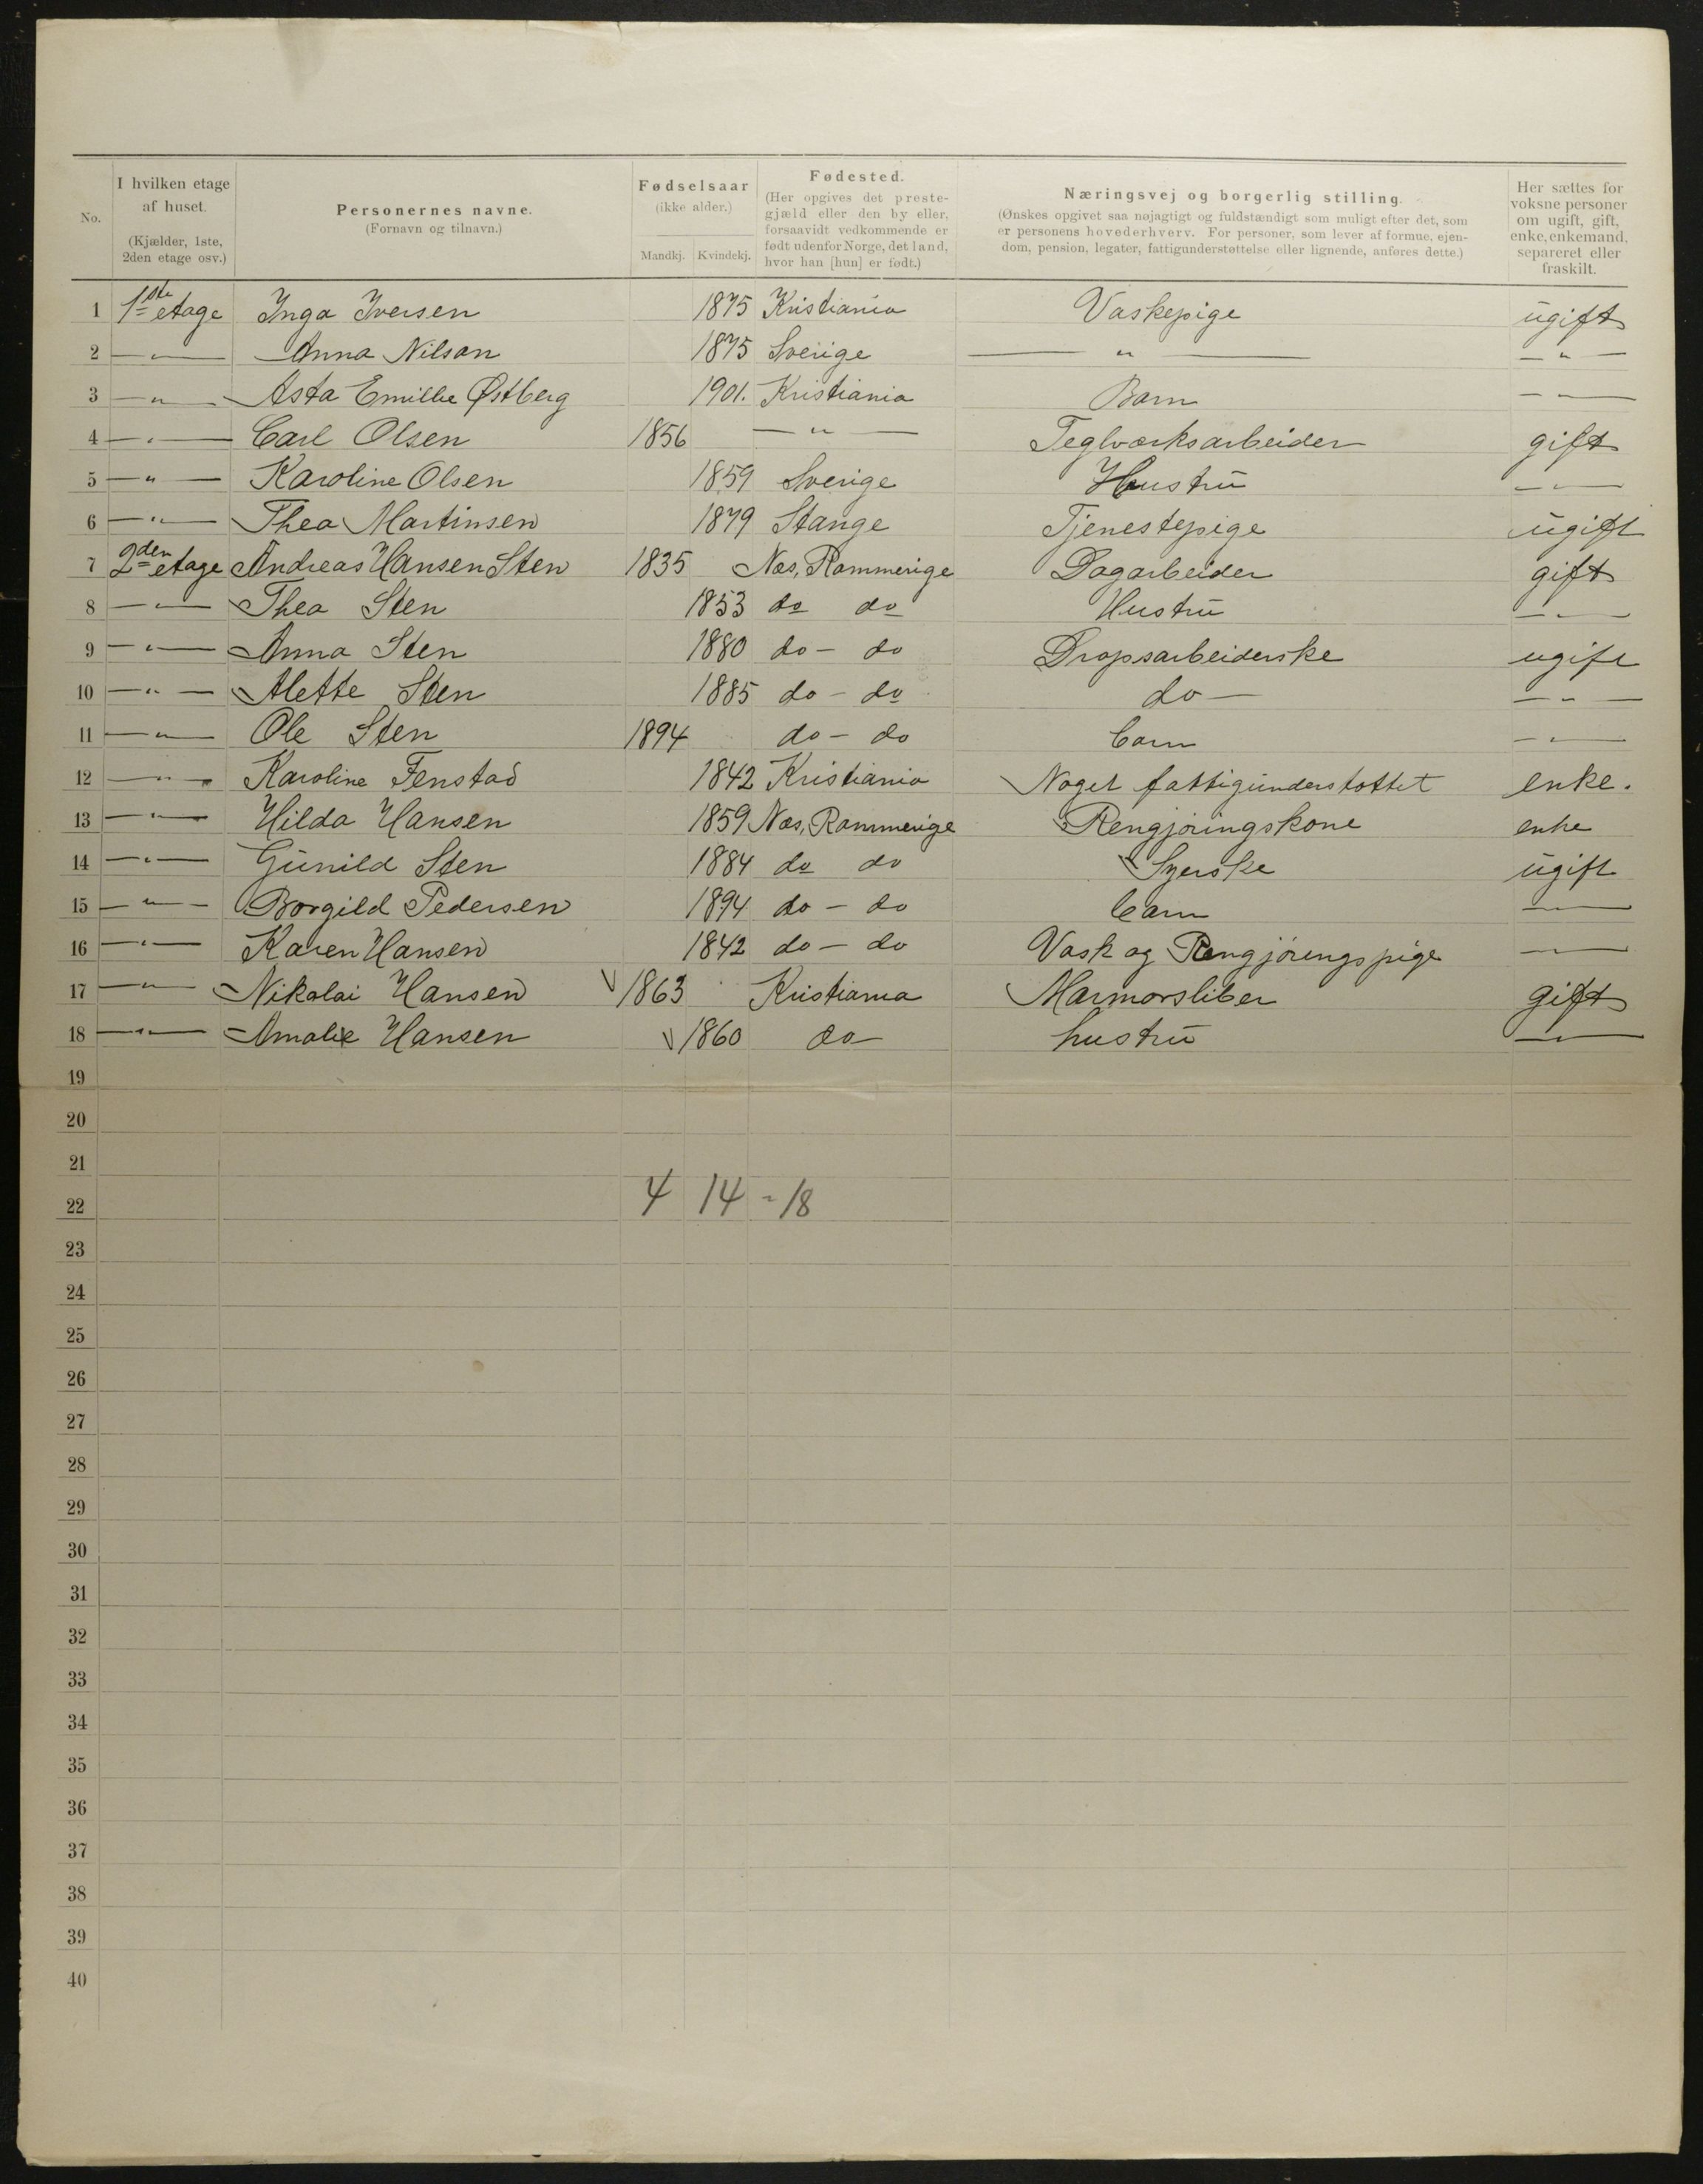 No.
I hvilken etage af huset. (Kjælder, 1ste, 2den etage osv.)
Personernes navne. (Fornavn og tilnavn.)
Fødselsaar (ikke alder.)
Mandkj. Kvindekj.
Fødested. (Her opgives det prestegjæld eller den by eller, forsaavidt vedkommende er født udenfor Norge, det land, hvor han [hun] er født.)
Næringsvej og borgerlig stilling.
(Ønskes opgivet saa nøjagtigt og fuldstændigt som muligt efter det, som
er personens hovederhverv. For personer, som lever af formue, ejen-
dom, pension, legater, fattigunderstøttelse eller lignende, anføres dette.)
Her sættes for voksne personer om ugift, gift, enke, enkemand, separeret eller fraskilt.
1 1ste etage Inga Iversen 1875 Kristiania Vaskepige ugift
2 — " — Anna Nilson 1875 Sverige — " — — " —
3 — " — Asta Emilie Østberg 1901. Kristiania Barn — " —
4 — " — Carl Olsen 1856 — " — Teglværksarbeider gift
5 — " — Karoline Olsen 1859 Sverige Hustru — " —
6 — " — Thea Martinsen 1879 Stange Tjenestepige ugift
7 2den etage Andreas Hansen Sten 1835 Nes, Rommerige Dagarbeider gift
8 — " — Thea Sten 1853 do do Hustru — " —
9 — " — Anna Sten 1880 do - do Dropsarbeiderske ugift
10 — " — Alette Sten 1885 do - do do — — " —
11 — " — Ole Sten 1894 do - do barn — " —
12 — " — Karoline Fenstad 1842 Kristiania Noget fattigunderstottet enke.
13 — " — Hilda Hansen 1859 Nes, Rommerige Rengjøringskone enke
14 — " — Gunild Sten 1884 do do Syerske ugift
15 — " — Borgild Pedersen 1894 do - do barn — " —
16 — " — Karen Hansen 1842 do - do Vask og Rengjøringspige — " —
17 — " — Nikolai Hansen 1863 Kristiania Marmorsliber gift
18 — " — Amalie Hansen 1860 do hustru — " —
19
20
21
22 4 14 = 18
23
24
25
26
27
28
29
30
31
32
33
34
35
36
37
38
39
40